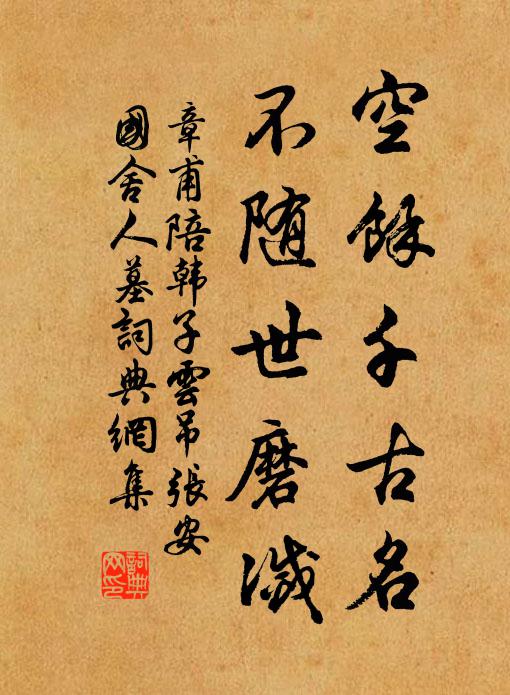 空餘千古名
不随世磨滅
章甫陪韩子雲吊張安
國舍人墓詞典網集
詞典网印